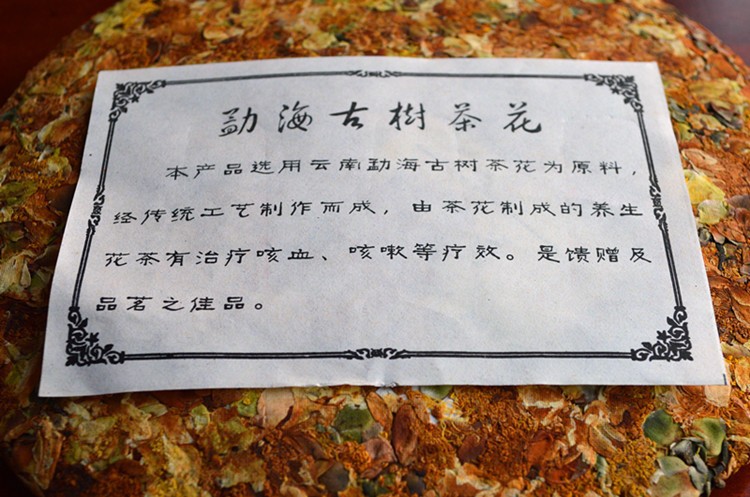 勐海古樹茶花
本产品选用云南勐海古树茶花为原料，
经传统工艺制作而成，由茶花制成的养生
花茶有治疗咳血、咳嗽等疗效。是馈赠及
品茗之佳品。